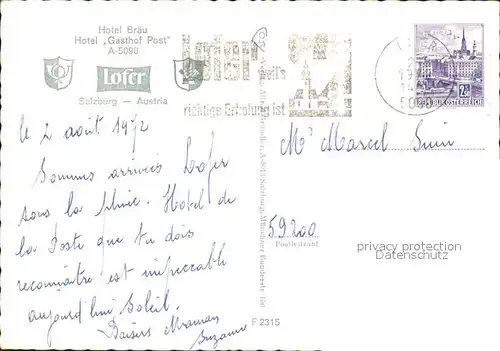 Hotel Bräu
Hotel „Gasthof Post"
A-5090
Lofer
Salzburg - Austria
Lofer
weil's
richtige Erholung ist
REPUBLIK ÖSTERREICH
le 2 août 1972
Sommes arrivés Lofer
sous la pluie. Hotel de
la Poste que tu dois
reconnaître est impeccable
aujourd'hui Soleil.
Baisers Maman
Suzanne
Mr Marcel
59200
Postleitzahl
F 2315
privacy protection
Datenschutz